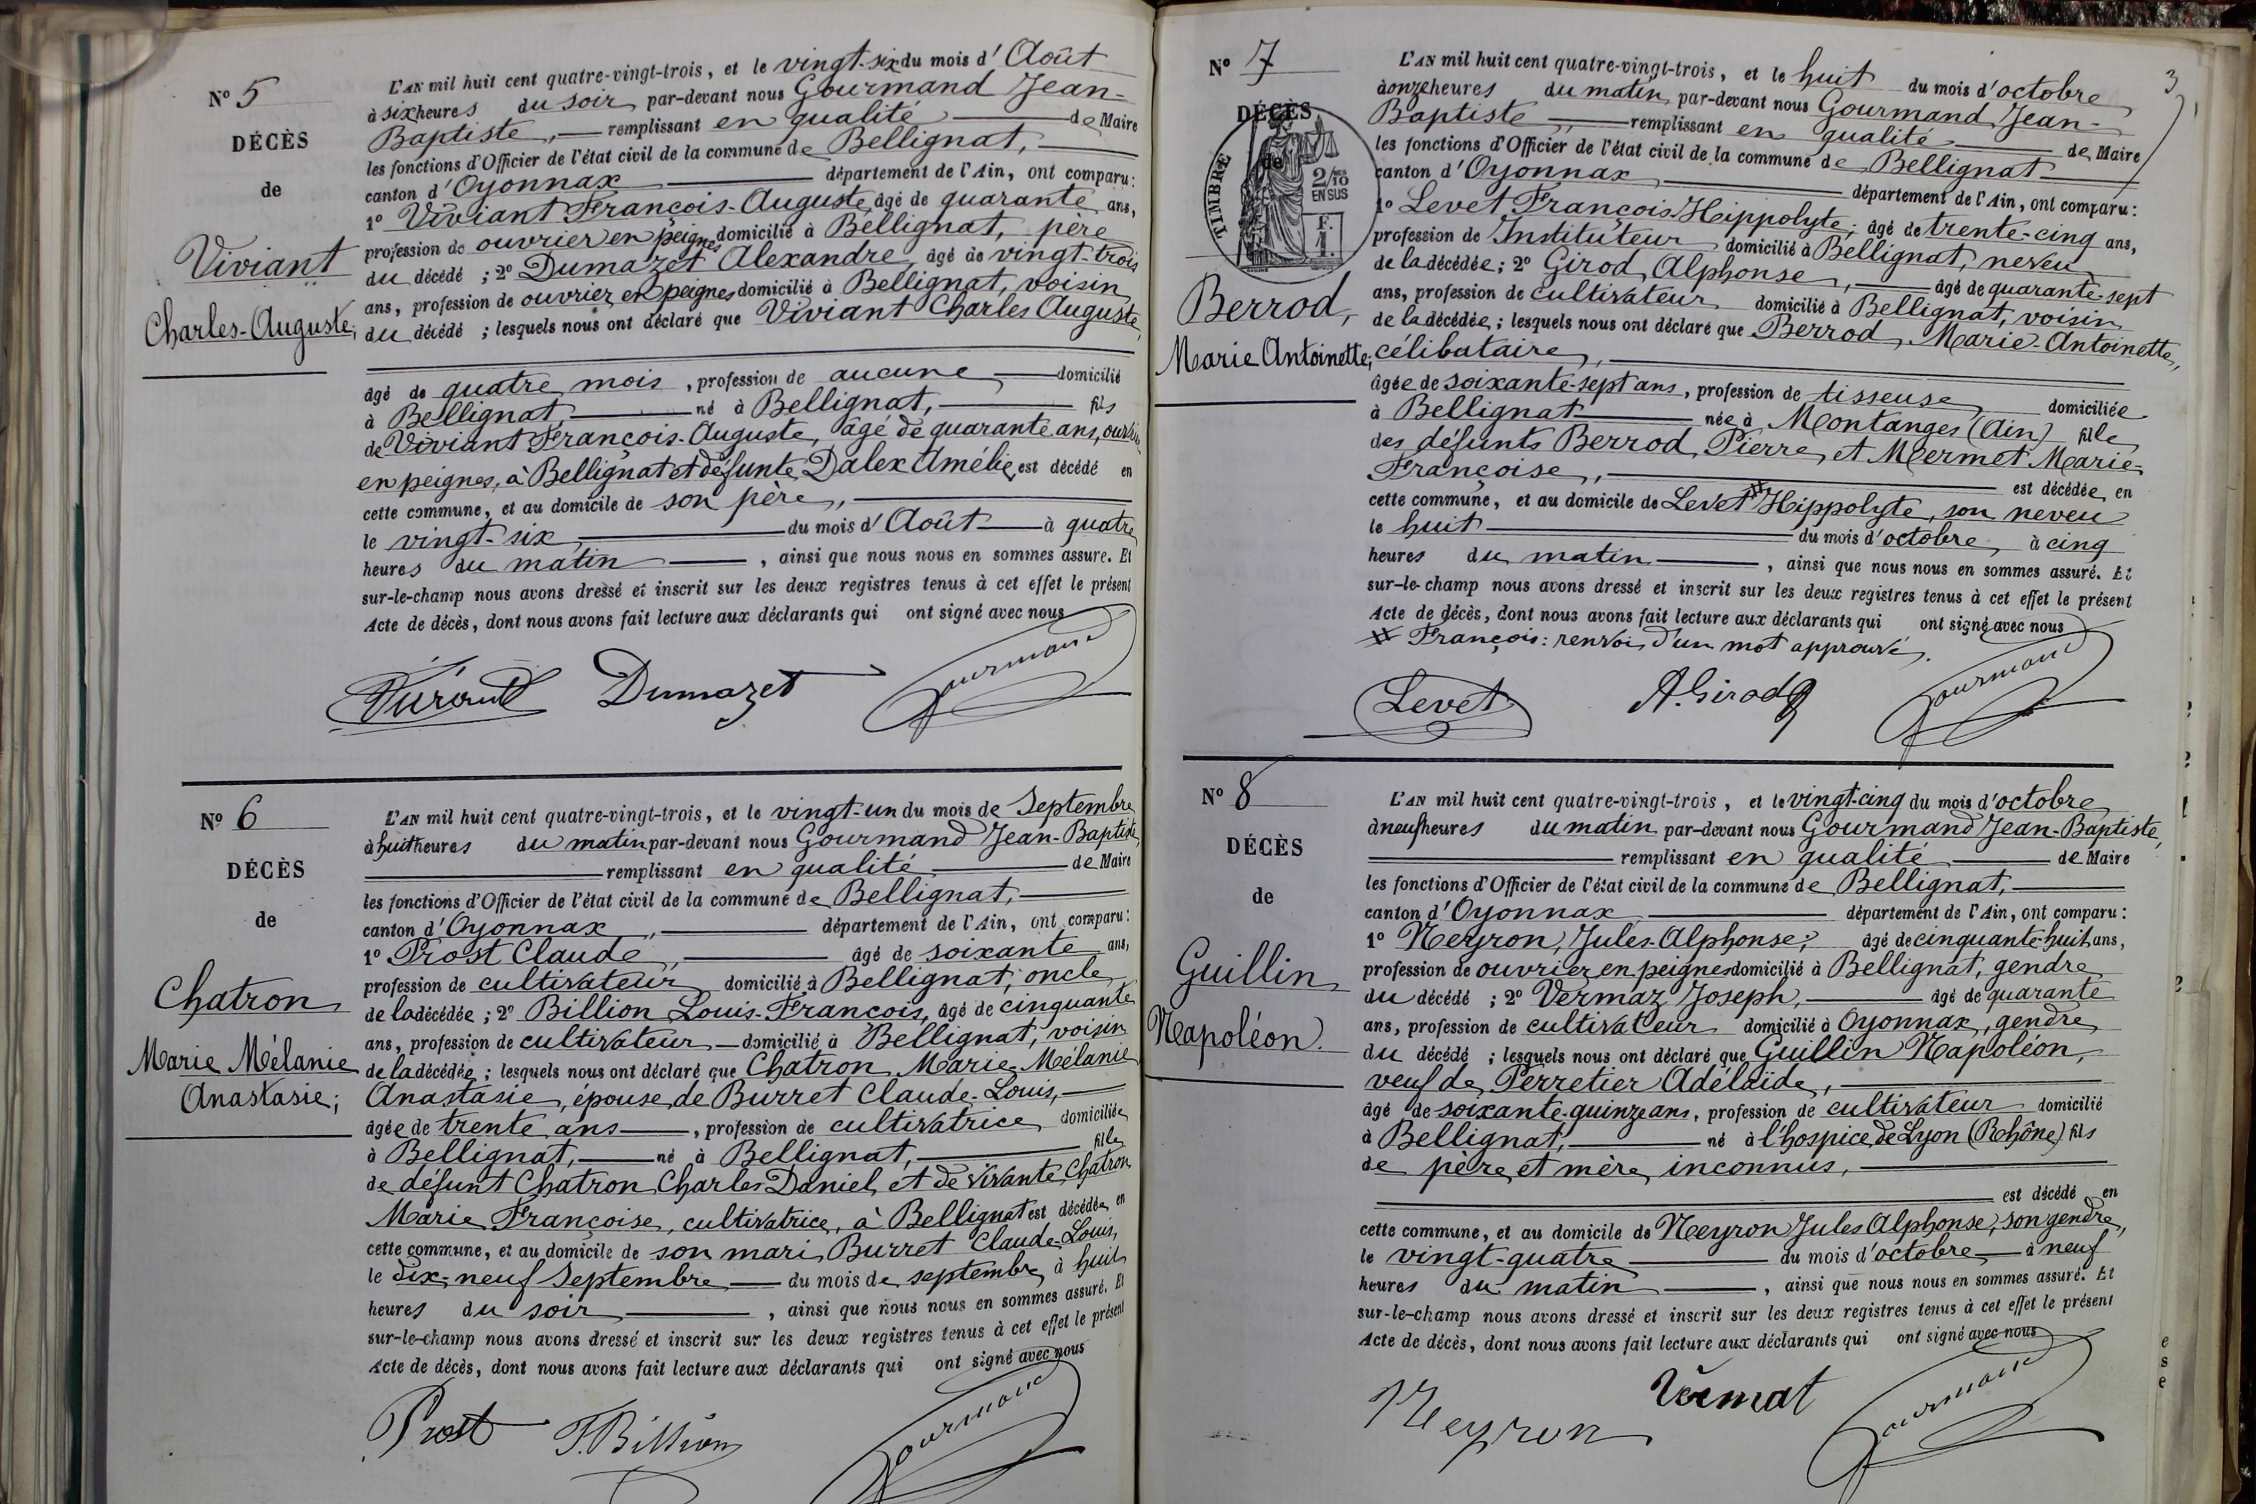 N° 5
DÉCÈS
de
Viviant
Charles-Auguste,
L'AN mil huit cent quatre-vingt-trois, et le vingt-six du mois d'Août
à six heures du soir par-devant nous Gourmand Jean-
Baptiste, remplissant en qualité de Maire
les fonctions d'Officier de l'état civil de la commune de Bellignat,
canton d'Oyonnax département de l'Ain, ont comparu:
1° Viviant François-Auguste, âgé de quarante ans,
profession de ouvrier en peignes domicilié à Bellignat, père
du décédé ; 2° Dumazet Alexandre, âgé de vingt-trois
ans, profession de ouvrier en peignes domicilié à Bellignat, voisin
du décédé ; lesquels nous ont déclaré que Viviant Charles Auguste,
âgé de quatre mois, profession de aucune domicilié
à Bellignat, né à Bellignat, fils
de Viviant François-Auguste, âgé de quarante ans, ouvrier
en peignes, à Bellignat et défunte Dalex Amélie, est décédé en
cette commune, et au domicile de son père,
le vingt-six du mois d'Août à quatre
heures du matin, ainsi que nous nous en sommes assuré. Et
sur-le-champ nous avons dressé et inscrit sur les deux registres tenus à cet effet le présent
Acte de décès, dont nous avons fait lecture aux déclarants qui ont signé avec nous
Dumazet Gourmand
N° 6
DÉCÈS
de
Chatron
Marie Mélanie
Anastasie;
L'AN mil huit cent quatre-vingt-trois, et le vingt-un du mois de Septembre
à huit heures du matin par-devant nous Gourmand Jean-Baptiste,
remplissant en qualité de Maire
les fonctions d'Officier de l'état civil de la commune de Bellignat,
canton d'Oyonnax, département de l'Ain, ont comparu:
1° Prost Claude, âgé de soixante ans,
profession de cultivateur domicilié à Bellignat, oncle
de la décédée ; 2° Billion Louis-François, âgé de cinquante
ans, profession de cultivateur domicilié à Bellignat, voisin
de la décédée ; lesquels nous ont déclaré que Chatron Marie Mélanie
Anastasie, épouse de Burret Claude-Louis,
âgée de trente ans, profession de cultivatrice domiciliée
à Bellignat, né à Bellignat, fille
de défunt Chatron Charles Daniel, et de vivante Chatron
Marie Françoise, cultivatrice, à Bellignat est décédée en
cette commune, et au domicile de son mari Burret Claude-Louis,
le dix-neuf Septembre du mois de septembre à huit
heures du soir, ainsi que nous nous en sommes assuré. Et
sur-le-champ nous avons dressé et inscrit sur les deux registres tenus à cet effet le présent
Acte de décès, dont nous avons fait lecture aux déclarants qui ont signé avec nous
Prost F. Billion Gourmand
3
N° 7
DÉCÈS
de
TIMBRE
2/10 EN SUS
F. 1.
Berrod,
Marie Antoinette;
L'AN mil huit cent quatre-vingt-trois, et le huit du mois d'octobre
à onze heures du matin par-devant nous Gourmand Jean-
Baptiste, remplissant en qualité de Maire
les fonctions d'Officier de l'état civil de la commune de Bellignat
canton d'Oyonnax département de l'Ain, ont comparu:
1° Levet François Hippolyte, âgé de trente-cinq ans,
profession de Instituteur domicilié à Bellignat, neveu
de la décédée; 2° Girod Alphonse, âgé de quarante-sept
ans, profession de cultivateur domicilié à Bellignat, voisin
de la décédée; lesquels nous ont déclaré que Berrod Marie-Antoinette,
célibataire,
âgée de soixante-sept ans, profession de tisseuse domiciliée
à Bellignat née à Montanges (Ain) fille
des défunts Berrod Pierre et Mermet Marie-
Françoise, est décédée en
cette commune, et au domicile de Levet # Hippolyte, son neveu
le huit du mois d'octobre, à cinq
heures du matin, ainsi que nous nous en sommes assuré. Et
sur-le-champ nous avons dressé et inscrit sur les deux registres tenus à cet effet le présent
Acte de décès, dont nous avons fait lecture aux déclarants qui ont signé avec nous
# François: renvoi d'un mot approuvé.
Levet A. Girod Gourmand
N° 8
DÉCÈS
de
Guillin
Napoléon.
L'AN mil huit cent quatre-vingt-trois, et le vingt-cinq du mois d'octobre
à neuf heures du matin par-devant nous Gourmand Jean-Baptiste,
remplissant en qualité de Maire
les fonctions d'Officier de l'état civil de la commune de Bellignat,
canton d'Oyonnax département de l'Ain, ont comparu:
1° Neyron Jules-Alphonse, âgé de cinquante-huit ans,
profession de ouvrier en peignes domicilié à Bellignat, gendre
du décédé ; 2° Vermaz Joseph, âgé de quarante
ans, profession de cultivateur domicilié à Oyonnax, gendre
du décédé ; lesquels nous ont déclaré que Guillin Napoléon,
veuf de Perretier Adélaïde,
âgé de soixante-quinze ans, profession de cultivateur domicilié
à Bellignat, né à l'hospice de Lyon (Rhône) fils
de père et mère inconnus,
est décédé en
cette commune, et au domicile de Neyron Jules Alphonse, son gendre,
le vingt-quatre du mois d'octobre à neuf
heures du matin, ainsi que nous nous en sommes assuré. Et
sur-le-champ nous avons dressé et inscrit sur les deux registres tenus à cet effet le présent
Acte de décès, dont nous avons fait lecture aux déclarants qui ont signé avec nous
Neyron Vermat Gourmand